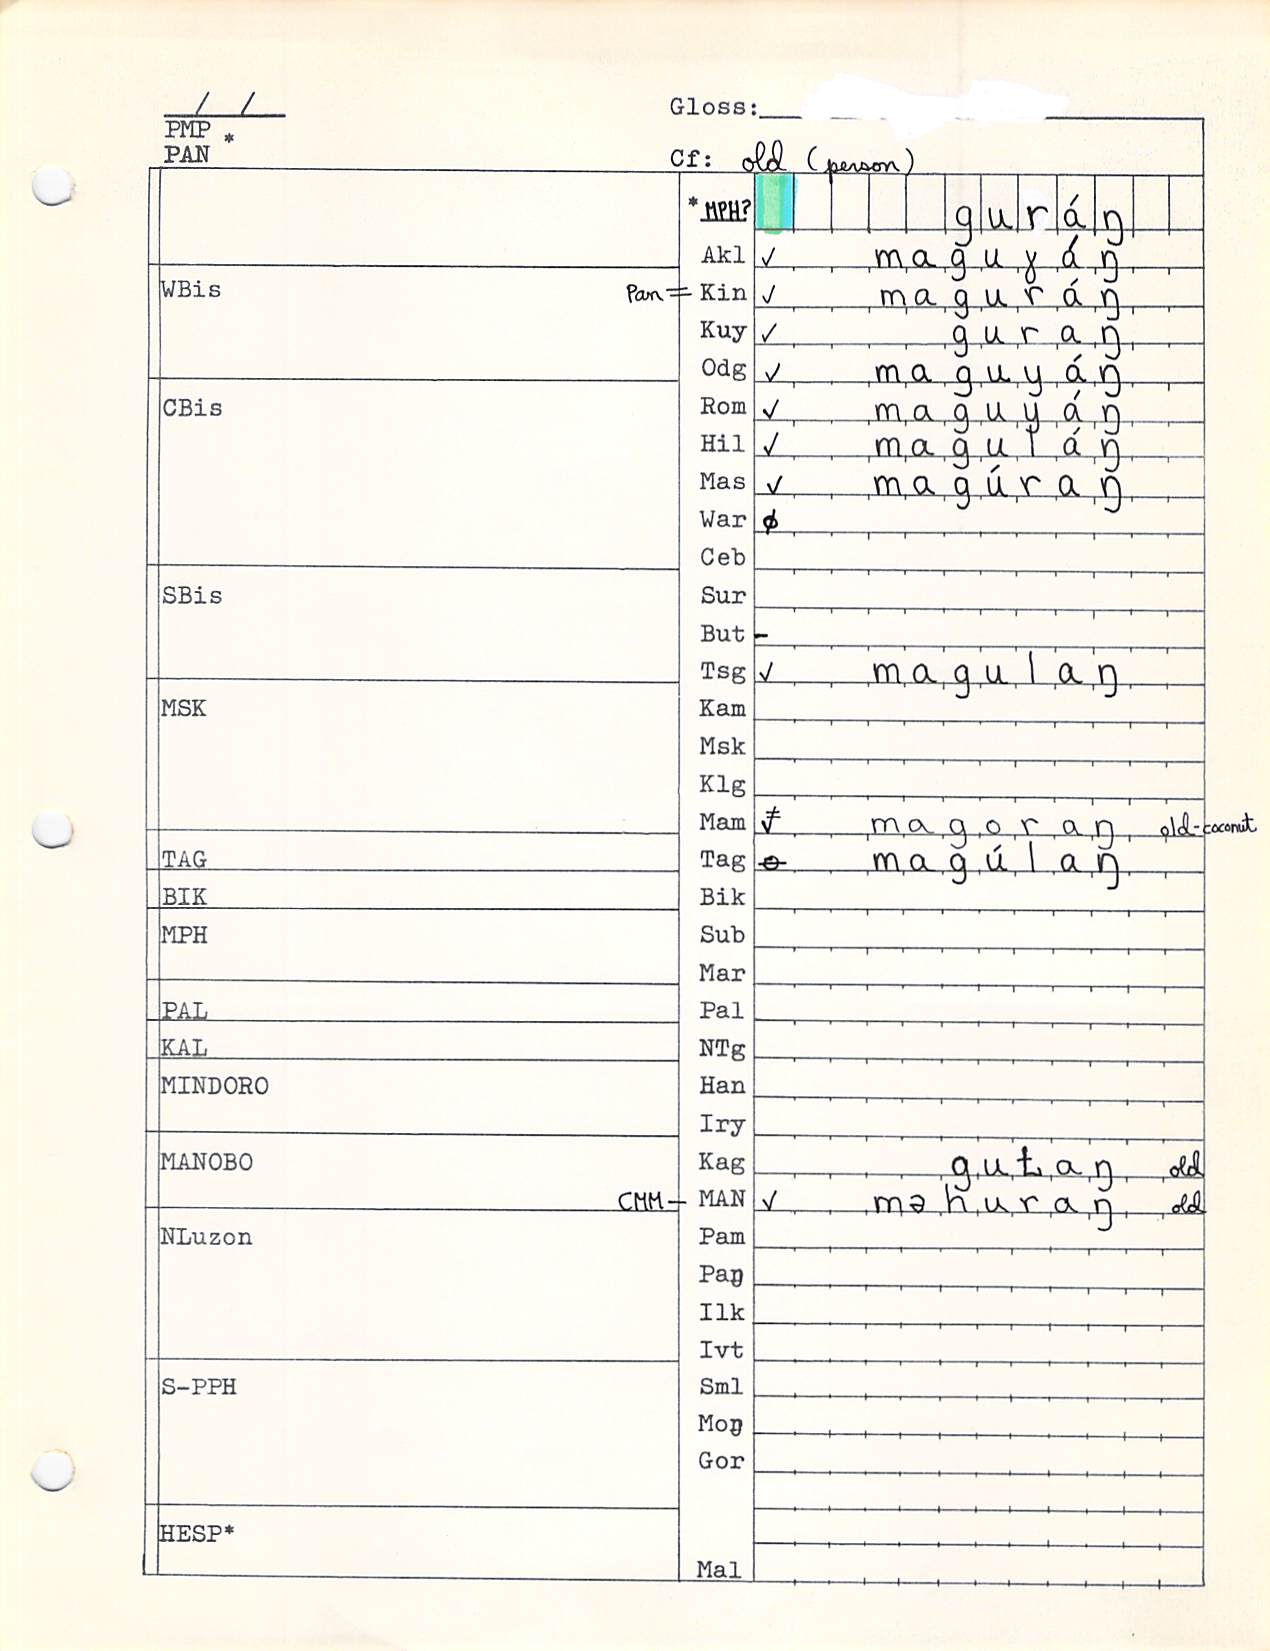 / /
Gloss:
PMP *
PAN
Cf: old (person)
*MPH? guráŋ
Akl ✓ maguɣáŋ
WBis
Pan = Kin ✓ maguráŋ
Kuy ✓ guraŋ
Odg ✓ maguyáŋ
CBis
Rom ✓ maguyáŋ
Hil ✓ maguláŋ
Mas ✓ magúraŋ
War ∅
Ceb
SBis
Sur
But -
Tsg ✓ magulaŋ
MSK
Kam
Msk
Klg
Mam ✓ ≠ magoraŋ old-coconut
TAG
Tag magúlaŋ
BIK
Bik
MPH
Sub
Mar
PAL
Pal
KAL
NTg
MINDORO
Han
Iry
MANOBO
Kag guɫaŋ old
CMM - MAN ✓ məhuraŋ old
NLuzon
Pam
Paŋ
Ilk
Ivt
S-PPH
Sml
Moŋ
Gor
HESP*
Mal